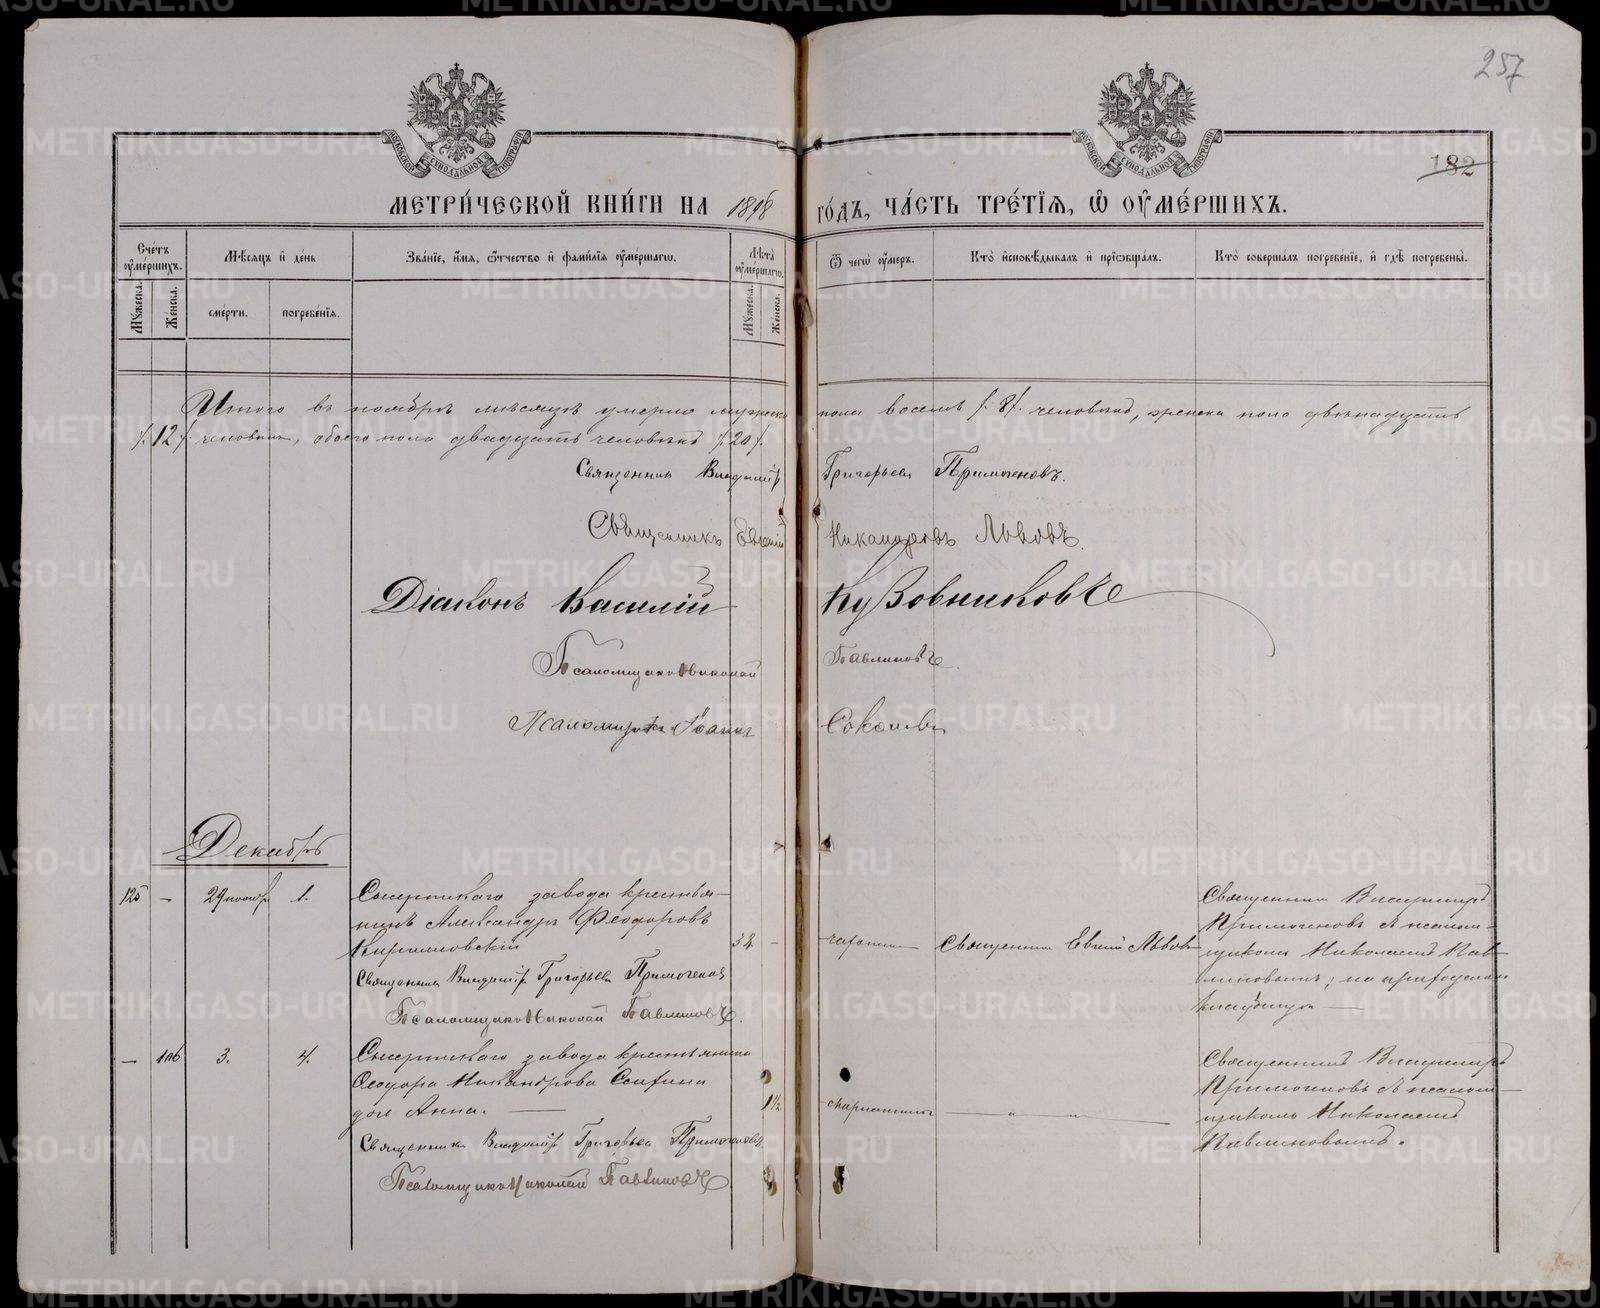 257
182
МОСКОВСКОЙ СѴНОДАЛЬНОЙ ТИПОГРАФІИ
МОСКОВСКОЙ СѴНОДАЛЬНОЙ ТИПОГРАФІИ
МЕТРИ́ЧЕСКОЙ КНИ́ГИ НА 1898 ГО́ДЪ, ЧА́СТЬ ТРЕ́ТІЯ, Ѡ ОУ҆МЕ́РШИХЪ.
Сче́тъ оу҆ме́ршихъ.
Му́жеска.
Же́нска.
Мѣ́сяцъ и҆ де́нь
сме́рти.
погребе́нія.
Зва́ніе, и҆́мя, ѻ҆́тчество и҆ фами́лія оу҆ме́ршагѡ.
Лѣ́та оу҆ме́ршагѡ.
Му́жеска.
Же́нска.
Ѿ чегѡ̀ оу҆́меръ.
Кто̀ и҆сповѣ́дывалъ и҆ прїѡбща́лъ.
Кто̀ соверша́лъ погребе́ніе, и҆ гдѣ̀ погребены̀.
Итого въ ноябрѣ мѣсяцѣ умерло мужеска пола восемь /.8/. человѣкъ, женска пола двѣнадцать
/.12/. человѣкъ, обоего пола двадцать человѣкъ /.20/.
Священникъ Владиміръ Григорьевъ Примогеновъ.
Священникъ Евгеній Никандровъ Львовъ.
Діаконъ Василій Кузовниковъ
Псаломщикъ Николай Павлиновъ.
Псаломщикъ Іоаннъ Соколовъ
Декабрь
125 — 29 ноября 1. Сысертскаго завода крестья-
нинъ Александръ Ѳеодоровъ
Кирилловскій — чахотки Священникъ Евгеній Львовъ
Священникъ Владиміръ
Примогеновъ съ псалом-
щикомъ Николаемъ Пав-
линовымъ; на приходскомъ
кладбищѣ —
Священникъ Владиміръ Григорьевъ Примогеновъ
Псаломщикъ Николай Павлиновъ.
— 106 3. 4. Сысертскаго завода крестьянина
Ѳеодора Никандрова
дочь Анна. — 1½ скарлатины — „ „ —
Священникъ Владиміръ
Примогеновъ съ псалом-
щикомъ Николаемъ
Павлиновымъ.
Священникъ Владиміръ Григорьевъ Примогеновъ
Псаломщикъ Николай Павлиновъ
METRIKI.GASO-URAL.RU